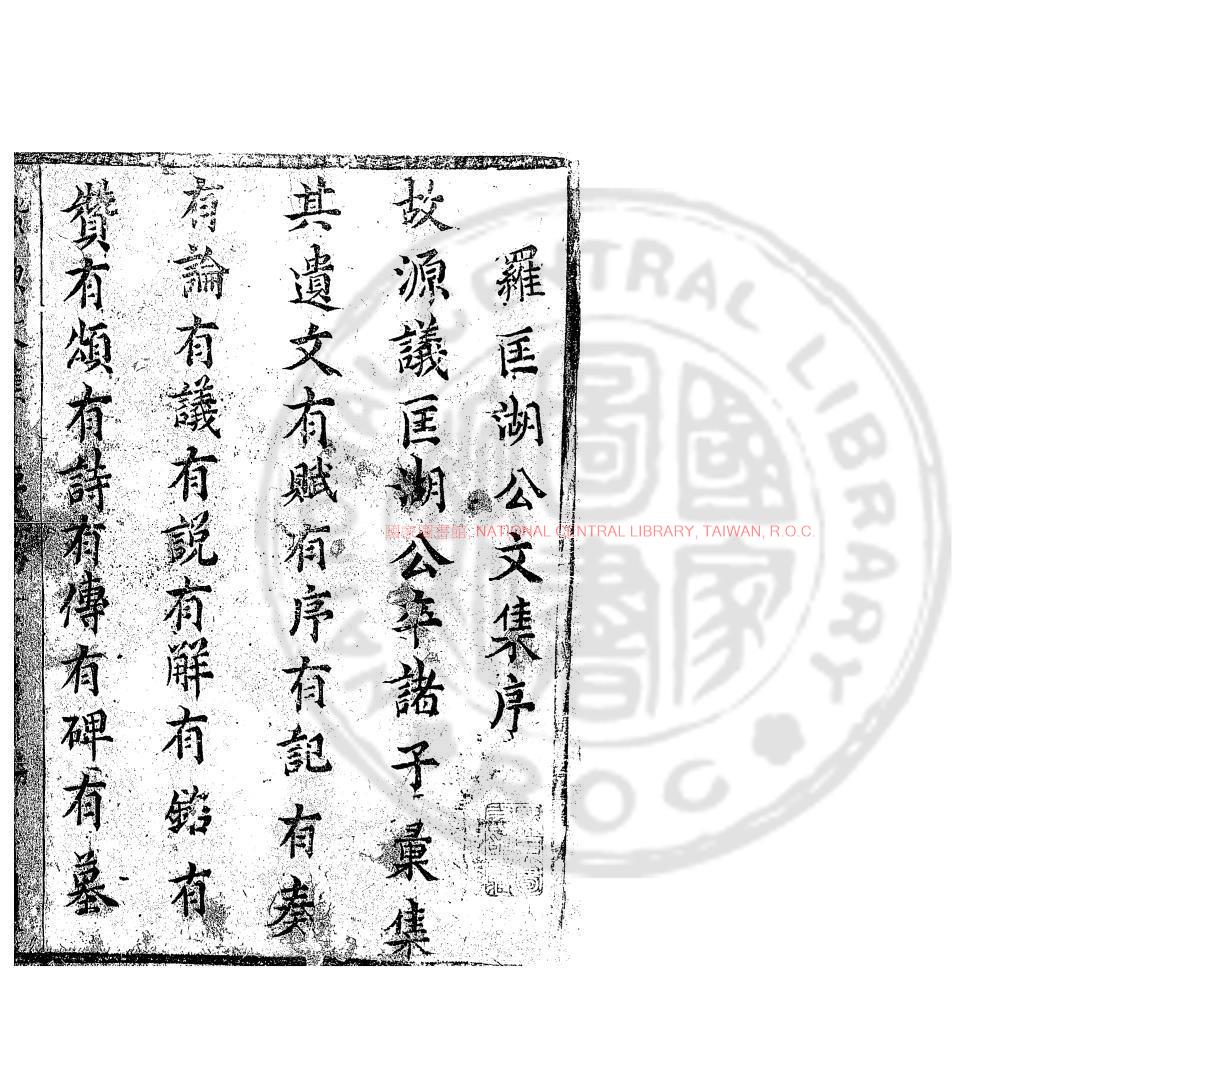 羅匡湖公文集序
故源議匡湖公卒諸子彙集
其遺文有賦有序有記有奏
有論有議有説有解有銘有
贊有頌有詩有傳有碑有墓
國家圖書館 NATIONAL CENTRAL LIBRARY, TAIWAN, R.O.C.
NATIONAL CENTRAL LIBRARY
R.O.C